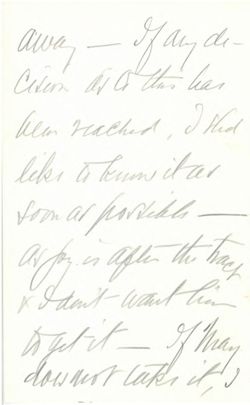 away — If any de-
cision as to this has
been reached, I shd
like to know it as
soon as possible —
as Joy is after the tract
& I don't want him
to get it — If May
does not take it, I